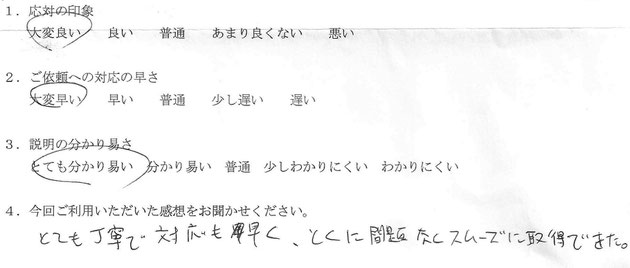 1．応対の印象
大変良い　良い　普通　あまり良くない　悪い
2．ご依頼への対応の早さ
大変早い　早い　普通　少し遅い　遅い
3．説明の分かり易さ
とても分かり易い　分かり易い　普通　少しわかりにくい　わかりにくい
4．今回ご利用いただいた感想をお聞かせください。
とても丁寧で対応も早く、とくに問題なくスムーズに取得できた。